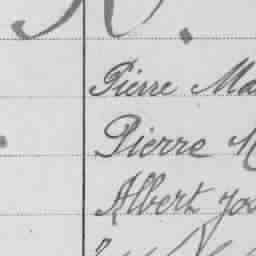 R.
Pierre Ma
Pierre
Albert Jos